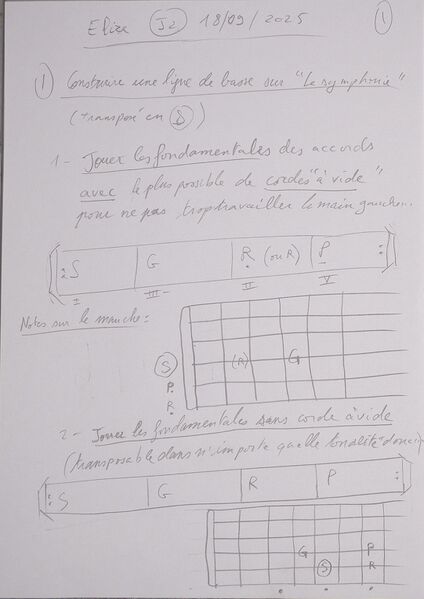 Elixe (J2) 18/09/2025 (1)
(1) Construire une ligne de basse sur "Le symphonie"
(transposé en (S))
1 - Jouer les fondamentales des accords
avec le plus possible de cordes "à vide"
pour ne pas trop travailler la main gauche.
S G R (ou R) P
I III- II V
Notes sur le manche :
(R) G
S
P
R
2 - Jouer les fondamentales sans corde à vide
(transposable dans n'importe quelle tonalité donc)
S G R P
G P
S R